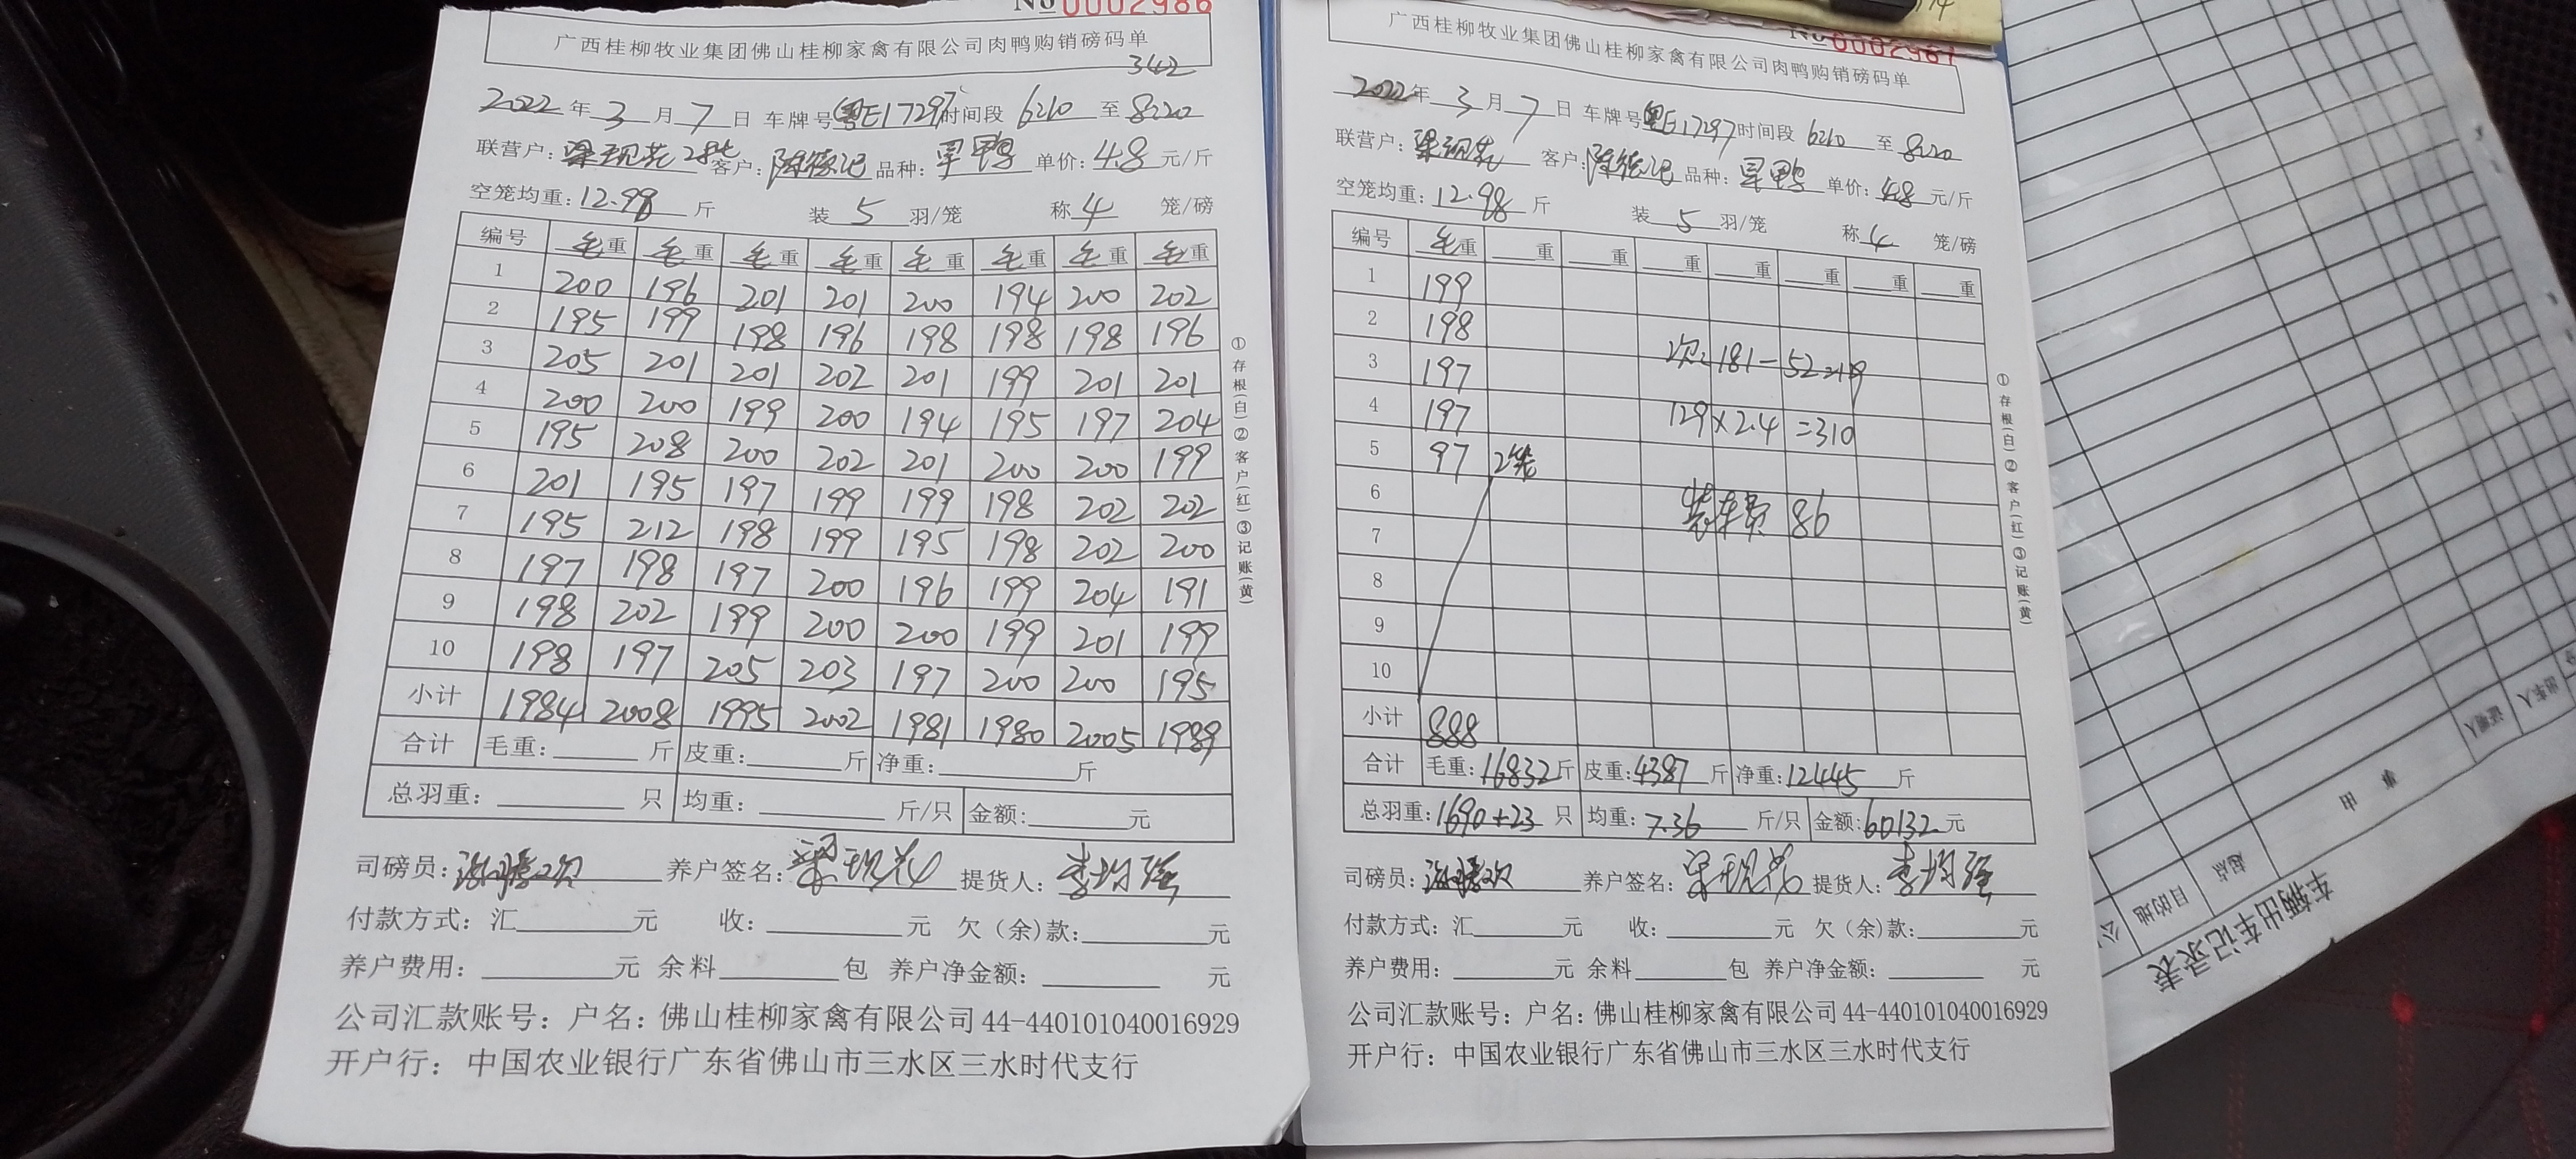 No 0002986
广西桂柳牧业集团佛山桂柳家禽有限公司肉鸭购销磅码单
342
2022年3月7日 车牌号粤E17297时间段6:10至8:20
联营户:梁现花2批 客户:陈德记 品种:旱鸭 单价:4.8元/斤
空笼均重:12.98斤 装5羽/笼 称4笼/磅
编号 毛重 毛重 毛重 毛重 毛重 毛重 毛重 毛重
1 200 196 201 201 200 194 200 202
2 195 199 198 196 198 198 198 196
3 205 201 201 202 201 199 201 201
4 200 200 199 200 194 195 197 204
5 195 208 200 202 201 200 200 199
6 201 195 197 199 199 198 202 202
7 195 212 198 199 195 198 202 200
8 197 198 197 200 196 199 204 191
9 198 202 199 200 200 199 201 199
10 198 197 205 203 197 200 200 195
小计 1984 2008 1995 2002 1981 1980 2005 1989
合计 毛重:____斤 皮重:____斤 净重:____斤
总羽重:____只 均重:____斤/只 金额:____元
司磅员: 养户签名:梁现花 提货人:李均强
付款方式:汇____元 收:____元 欠(余)款:____元
养户费用:____元 余料____包 养户净金额:____元
公司汇款账号:户名:佛山桂柳家禽有限公司44-440101040016929
开户行:中国农业银行广东省佛山市三水区三水时代支行
①存根(白)②客户(红)③记账(黄)
No 0002987
广西桂柳牧业集团佛山桂柳家禽有限公司肉鸭购销磅码单
2022年3月7日 车牌号粤E17297时间段6:10至8:20
联营户:梁现花 客户:陈德记 品种:旱鸭 单价:4.8元/斤
空笼均重:12.98斤 装5羽/笼 称4笼/磅
编号 毛重 重 重 重 重 重 重 重
1 199
2 198
3 197 次:181-52=129
4 197 129×2.4=310
5 97 2笼
6 装车费 86
7
8
9
10
小计 888
合计 毛重:16832斤 皮重:4387斤 净重:12445斤
总羽重:1690+23只 均重:7.36斤/只 金额:60132元
司磅员: 养户签名:梁现花 提货人:李均强
付款方式:汇____元 收:____元 欠(余)款:____元
养户费用:____元 余料____包 养户净金额:____元
公司汇款账号:户名:佛山桂柳家禽有限公司44-440101040016929
开户行:中国农业银行广东省佛山市三水区三水时代支行
①存根(白)②客户(红)③记账(黄)
车辆出车记录表
目的地
起点